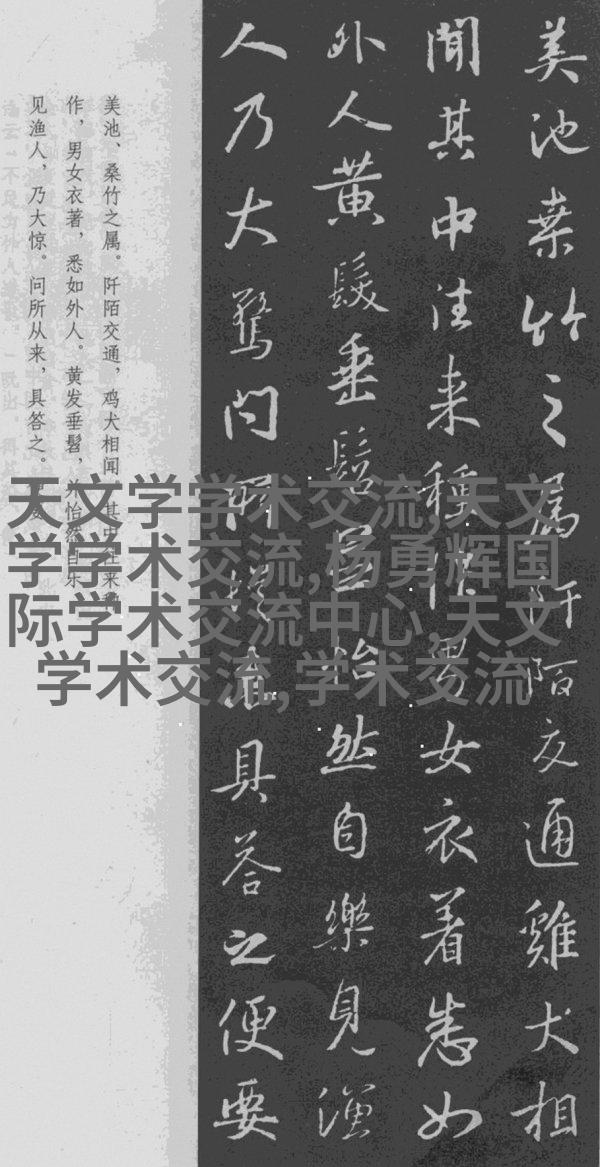 美池桑竹之属阡陌交通雞犬相
聞其中往来種作男女衣着悉如
外人黄髮垂髫並怡然自樂見漁
人乃大驚問所從来具答之便要
美池、桑竹之属。阡陌交通，鸡犬相闻。其中往来种
作，男女衣著，悉如外人。黄发垂髫，并怡然自乐
见渔人，乃大惊。问所从来，具答之。
天文学学术交流,天文
学学术交流,杨勇辉国
际学术交流中心,天文
学术交流,学术交流